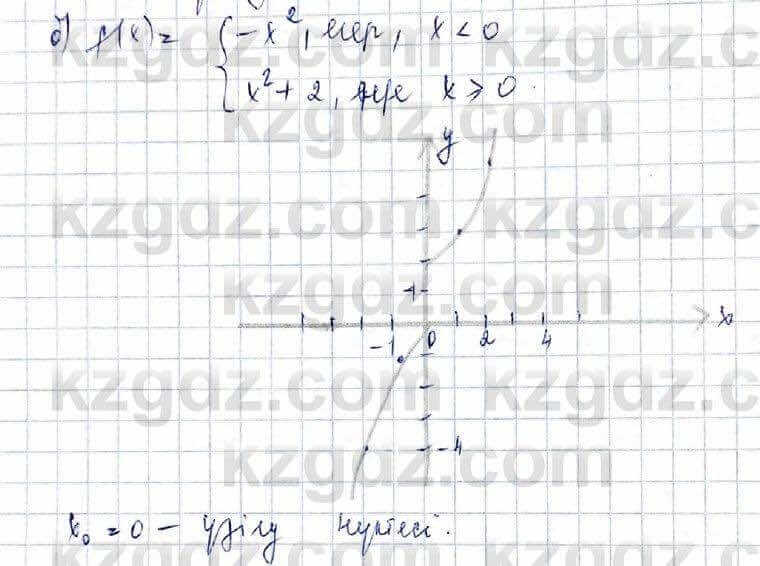 б) f(x) = { -x², егер, x < 0
x² + 2, егер x ≥ 0.
y
1
x
-1 0 2 4
-4
x₀ = 0 — үзілу нүктесі.
kzgdz.com
kzgdz.com kzgdz.com
kzgdz.com
kzgdz.com kzgdz.com
kzgdz.com
kzgdz.com kzgdz.com